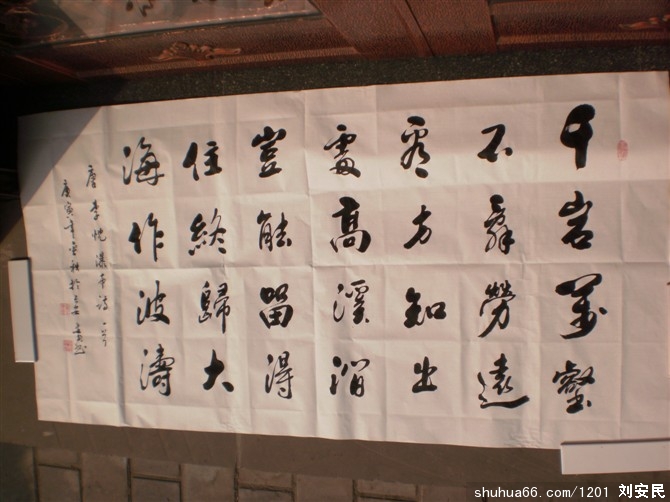 千岩萬壑
不辞勞遠
看方知出
處高溪澗
豈能留得
住終歸大
海作波濤
唐李忱瀑布詩一首
庚寅年金秋於
shuhua66.com/1201 刘安民